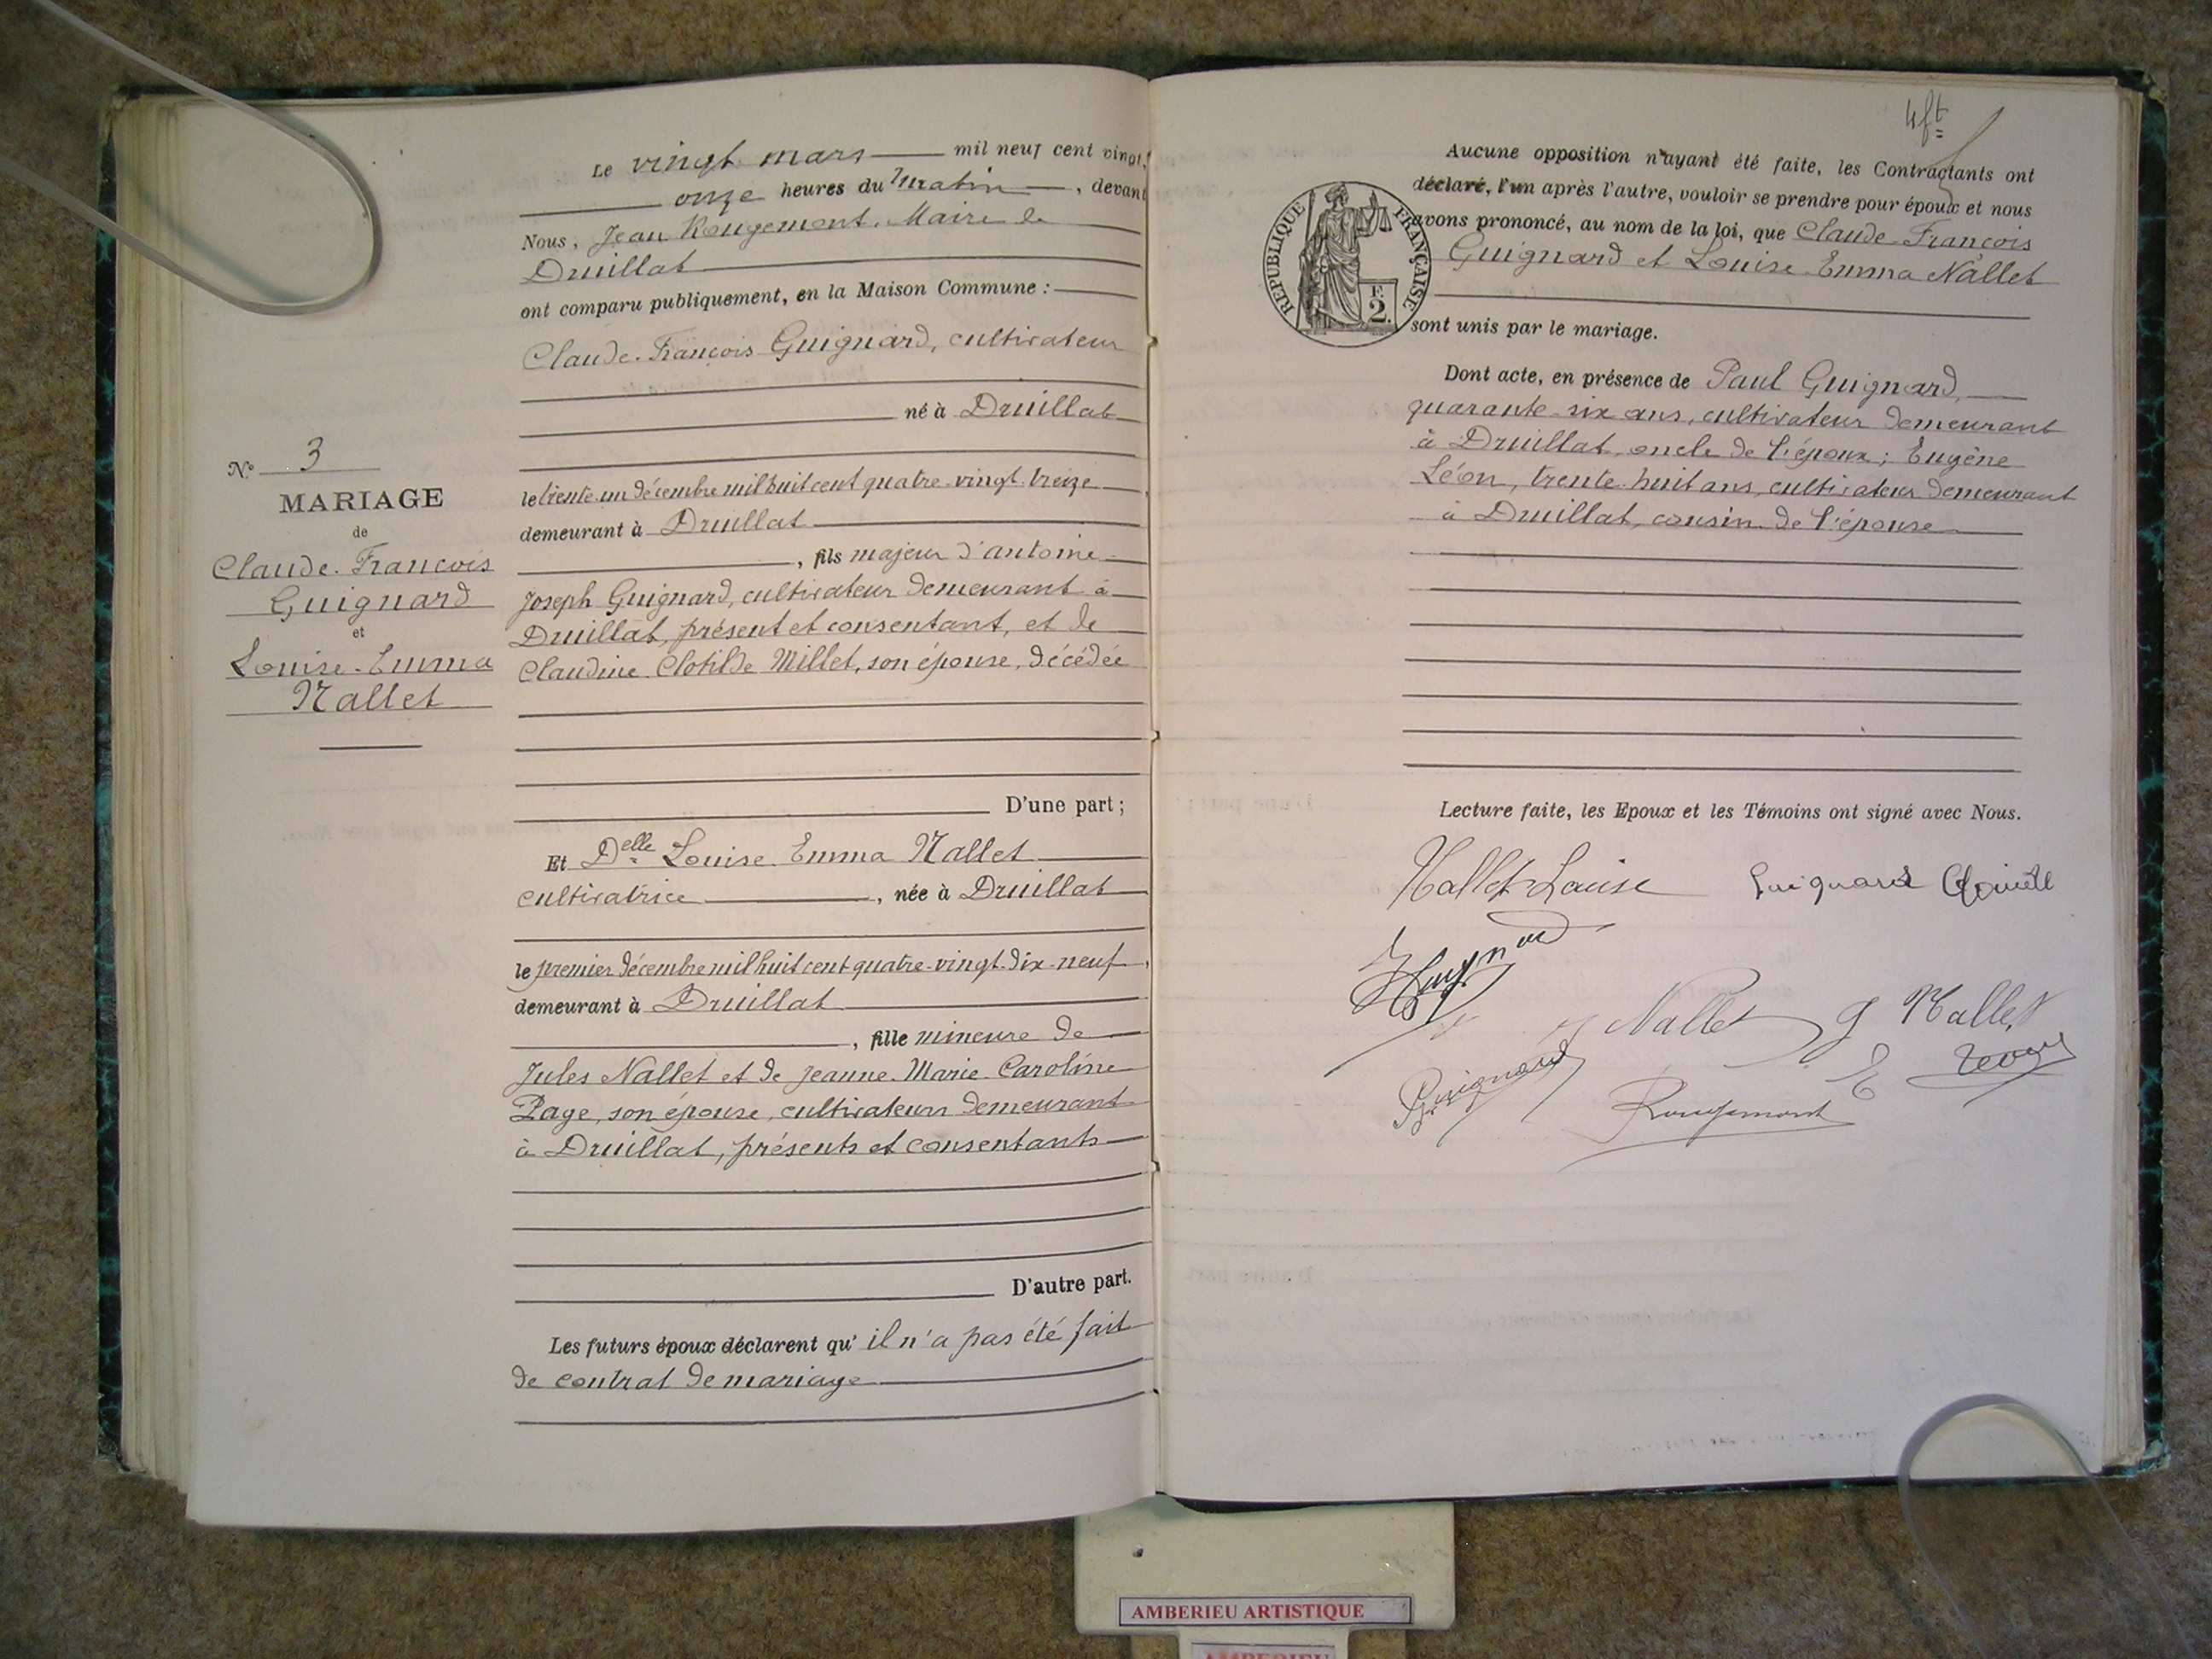 Le vingt mars mil neuf cent vingt,
onze heures du matin, devant
Nous, Jean Rougemont, Maire de
Druillat
ont comparu publiquement, en la Maison Commune :
Claude-François Guignard, cultivateur
né à Druillat
le trente-un décembre mil huit cent quatre-vingt-treize
demeurant à Druillat
, fils majeur d'antoine
Joseph Guignard, cultivateur demeurant à
Druillat, présent et consentant, et de
Claudine Clotilde Millet, son épouse, décédée
D'une part ;
Et Delle Louise Emma Nallet
cultivatrice, née à Druillat
le premier décembre mil huit cent quatre-vingt-dix-neuf,
demeurant à Druillat
, fille mineure de
Jules Nallet et de Jeanne-Marie-Caroline
Page, son épouse, cultivateurs demeurant
à Druillat, présents et consentants
D'autre part.
Les futurs époux déclarent qu'il n'a pas été fait
de contrat de mariage
N° 3
MARIAGE
de
Claude-François
Guignard
et
Louise-Emma
Nallet
4 ft
Aucune opposition n'ayant été faite, les Contractants ont
déclaré, l'un après l'autre, vouloir se prendre pour époux et nous
avons prononcé, au nom de la loi, que Claude-François
Guignard et Louise-Emma Nallet
sont unis par le mariage.
RÉPUBLIQUE FRANÇAISE
F.
2.
Dont acte, en présence de Paul Guignard,
quarante-six ans, cultivateur demeurant
à Druillat, oncle de l'époux ; Eugène
Léon, trente-huit ans, cultivateur demeurant
à Druillat, cousin de l'épouse
Lecture faite, les Epoux et les Témoins ont signé avec Nous.
Nallet Louise Guignard
Nallet J Nallet
P Guignard Rougemont E
AMBERIEU ARTISTIQUE
AMBERIEU